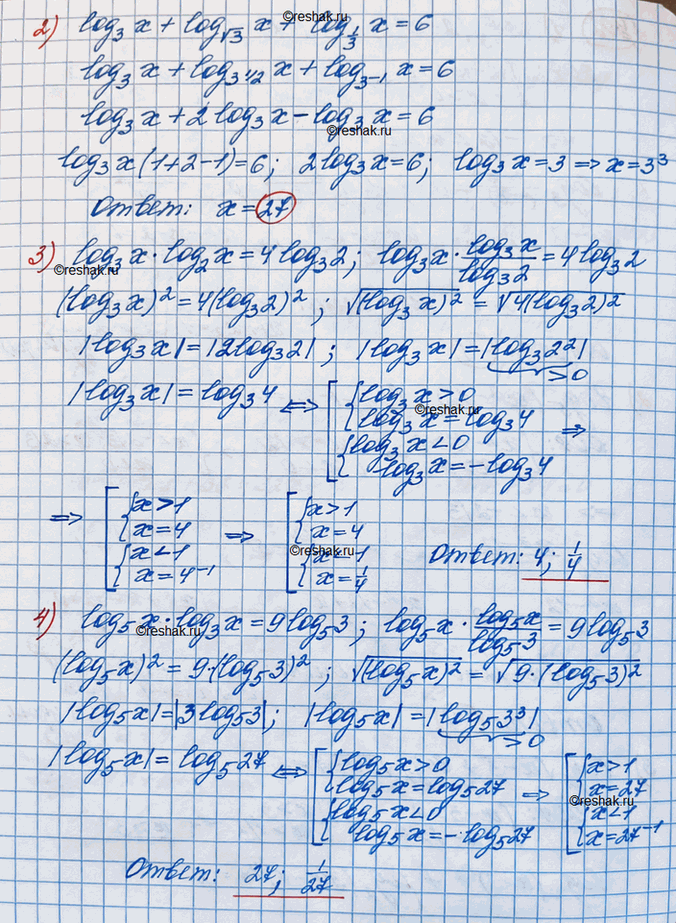 ©reshak.ru
2) log₃ x + log_√3 x + log_1/3 x = 6
log₃ x + log_3^1/2 x + log_3^-1 x = 6
log₃ x + 2 log₃ x - log₃ x = 6
©reshak.ru
log₃ x (1+2-1) = 6; 2 log₃ x = 6; log₃ x = 3 => x = 3³
Ответ: x = 27
3) log₃ x · log₂ x = 4 log₃ 2; log₃ x · log₃ x / log₃ 2 = 4 log₃ 2
©reshak.ru
(log₃ x)² = 4 (log₃ 2)²; √(log₃ x)² = √4(log₃ 2)²
|log₃ x| = |2 log₃ 2|; |log₃ x| = |log₃ 2²|
>0
|log₃ x| = log₃ 4 <=> [ { log₃ x > 0
log₃ x = log₃ 4
©reshak.ru
{ log₃ x < 0
log₃ x = - log₃ 4 =>
=> [ { x > 1
x = 4
{ x < 1
x = 4⁻¹ => [ { x > 1
x = 4
{ x < 1
x = 1/4
©reshak.ru
Ответ: 4; 1/4
4) log₅ x · log₃ x = 9 log₅ 3; log₅ x · log₅ x / log₅ 3 = 9 log₅ 3
©reshak.ru
(log₅ x)² = 9·(log₅ 3)²; √(log₅ x)² = √9·(log₅ 3)²
|log₅ x| = |3 log₅ 3|; |log₅ x| = |log₅ 3³|
>0
|log₅ x| = log₅ 27 <=> [ { log₅ x > 0
log₅ x = log₅ 27
{ log₅ x < 0
log₅ x = - log₅ 27 => [ { x > 1
x = 27
©reshak.ru
{ x < 1
x = 27⁻¹
Ответ: 27; 1/27